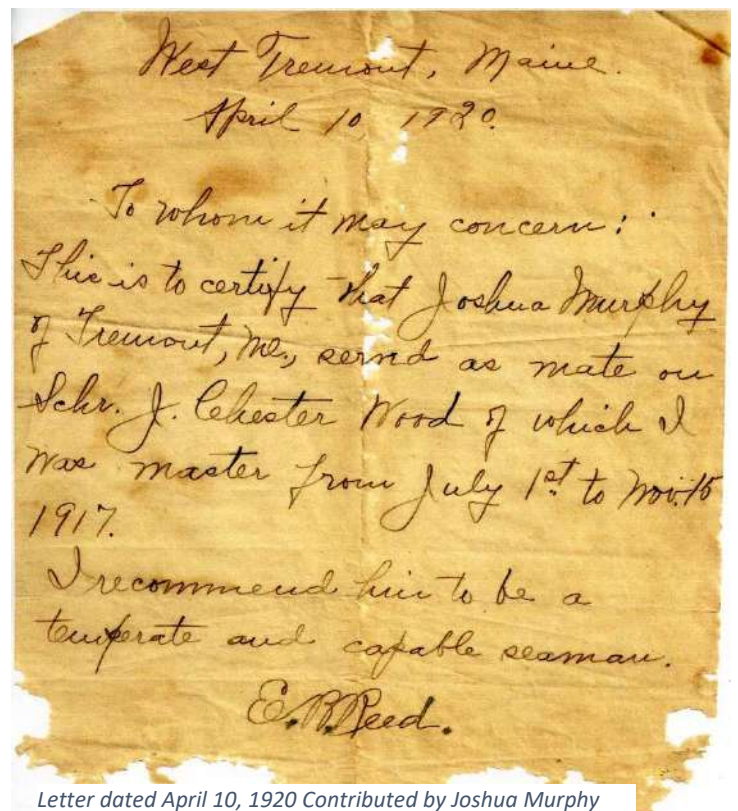 West Tremont, Maine.
April 10, 1920.
To whom it may concern:
This is to certify that Joshua Murphy
of Tremont, Me., servd as mate on
Schr. J. Chester Wood of which I
was master from July 1st to Nov. 15
1917.
I recommend him to be a
temperate and capable seaman.
E.R.Reed.
Letter dated April 10, 1920 Contributed by Joshua Murphy